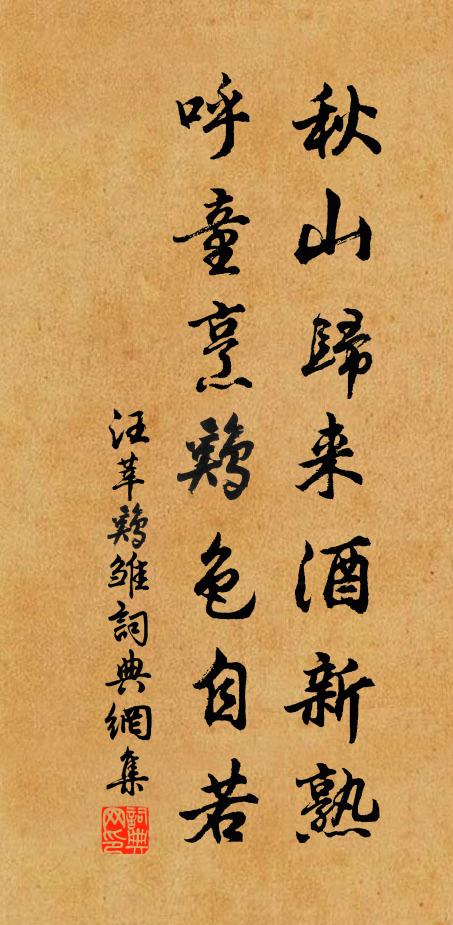 秋山歸来酒新熟
呼童烹鷄色自若
汪莘鷄雏詞典網集
詞典網印